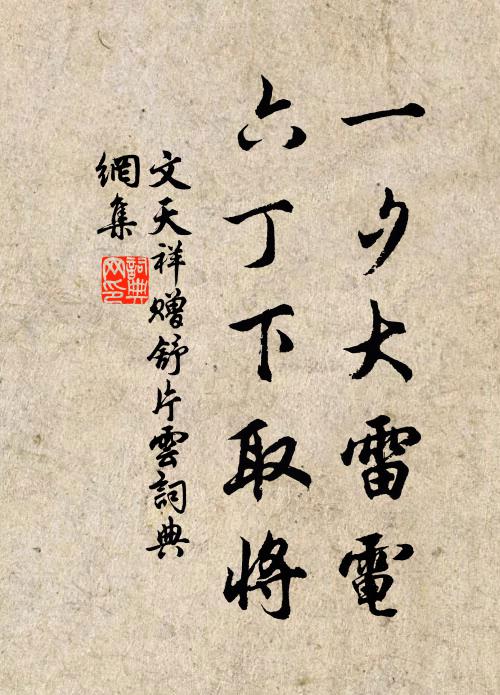 一夕大雷電
六丁下取將
文天祥贈舒片雲詞典
網集
詞典網印